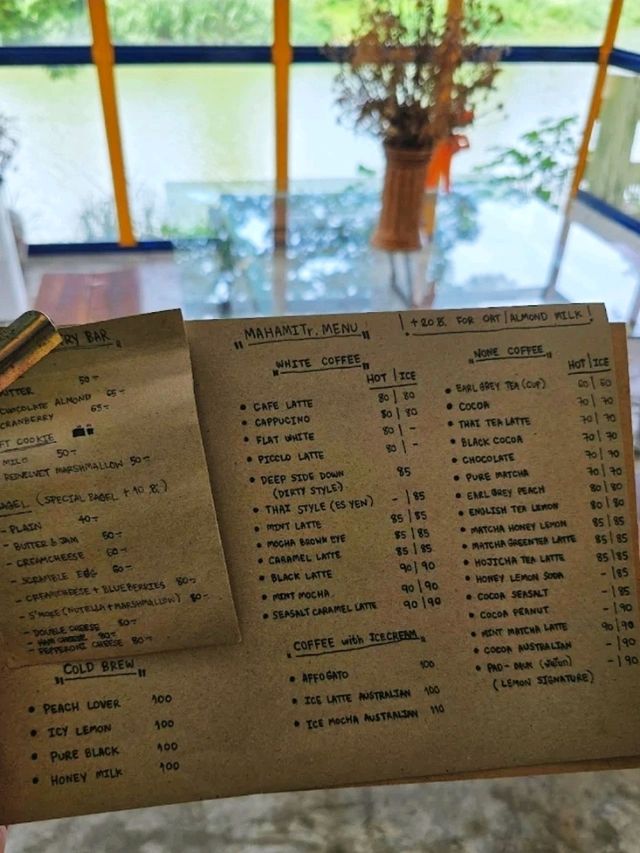 RY BAR
UTTER 50-
CHOCOLATE ALMOND 65-
CRANBERRY 65-
FT COOKIE
MILO 50-
REDVELVET MARSHMALLOW 50-
AGEL (SPECIAL BAGEL +10 ฿.)
- PLAIN 40-
- BUTTER & JAM 50-
- CREAMCHEESE 60-
- SCRAMBLE EGG 60-
- CREAMCHEESE + BLUEBERRIES 80-
- S'MORE (NUTELLA + MARSHMALLOW) 80-
- DOUBLE CHEESE 80-
- HAM CHEESE 90-
- PEPPERONI CHEESE 80-
"COLD BREW"
• PEACH LOVER 100
• ICY LEMON 100
• PURE BLACK 100
• HONEY MILK 100
"MAHAMITr. MENU"
"WHITE COFFEE"
HOT | ICE
• CAFE LATTE 80 | 80
• CAPPUCINO 80 | 80
• FLAT WHITE 80 | -
• PICCLO LATTE 80 | -
• DEEP SIDE DOWN 85
(DIRTY STYLE)
• THAI STYLE (ES YEN) - | 85
• MINT LATTE 85 | 85
• MOCHA BROWN EYE 85 | 85
• CARAMEL LATTE 85 | 85
• BLACK LATTE 90 | 90
• MINT MOCHA 90 | 90
• SEASALT CARAMEL LATTE 90 | 90
"COFFEE with ICECREAM"
• AFFOGATO 100
• ICE LATTE AUSTRALIAN 100
• ICE MOCHA AUSTRALIAN 110
+20 ฿. FOR OAT | ALMOND MILK !
"NONE COFFEE"
HOT | ICE
• EARL GREY TEA (CUP) 60 | 60
• COCOA 70 | 70
• THAI TEA LATTE 70 | 70
• BLACK COCOA 70 | 70
• CHOCOLATE 70 | 70
• PURE MATCHA 70 | 70
• EARL GREY PEACH 80 | 80
• ENGLISH TEA LEMON 80 | 80
• MATCHA HONEY LEMON 85 | 85
• MATCHA GREENTEA LATTE 85 | 85
• HOJICHA TEA LATTE 85 | 85
• HONEY LEMON SODA - | 85
• COCOA SEASALT - | 85
• COCOA PEANUT - | 90
• MINT MATCHA LATTE 90 | 90
• COCOA AUSTRALIAN - | 90
• PAD-DAUK - | 90
(LEMON SIGNATURE)